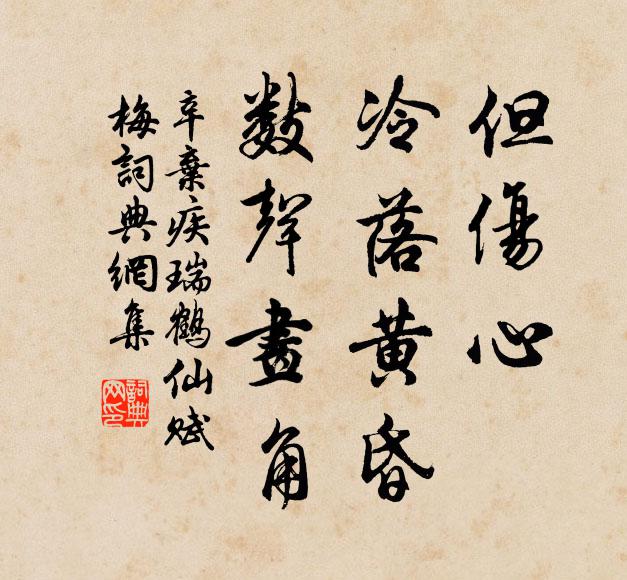 但傷心
冷落黃昏
數聲畫角
辛棄疾瑞鶴仙賦
梅詞典網集
詞典
网印